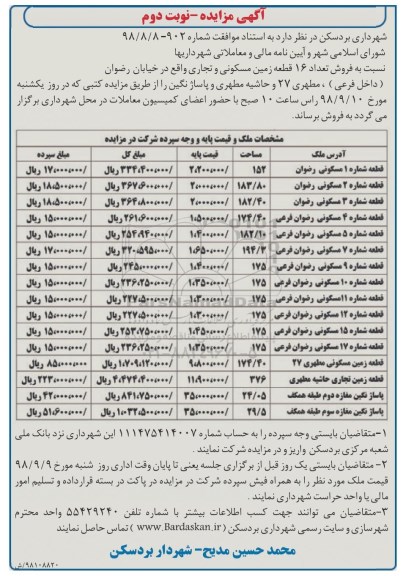 آگهی مزایده -نوبت دوم
شهرداری بردسکن در نظر دارد به استناد موافقت شماره ۹۰۲-۹۸/۸/۸
شورای اسلامی شهر و آیین نامه مالی و معاملاتی شهرداریها
نسبت به فروش تعداد ۱۶ قطعه زمین مسکونی و تجاری واقع در خیابان رضوان
( داخل فرعی ) ، مطهری ۲۷ و حاشیه مطهری و پاساژ نگین را از طریق مزایده کتبی که در روز یکشنبه
مورخ ۹۸/۹/۱۰ راس ساعت ۱۰ صبح با حضور اعضای کمیسیون معاملات در محل شهرداری برگزار
می گردد به فروش برساند.
مشخصات ملک و قیمت پایه و وجه سپرده شرکت در مزایده
آدرس ملک مساحت قیمت پایه مبلغ کل مبلغ سپرده
قطعه شماره ۱ مسکونی رضوان ۱۵۲ ۲/۲۰۰/۰۰۰ ۳۳۴/۴۰۰/۰۰۰ ریال ۱۷/۰۰۰/۰۰۰ ریال
قطعه شماره ۲ مسکونی رضوان ۱۸۳/۸۰ ۲/۰۰۰/۰۰۰ ۳۶۷/۶۰۰/۰۰۰ ریال ۱۸/۵۰۰/۰۰۰ ریال
قطعه شماره ۳ مسکونی رضوان ۱۸۲/۴۰ ۲/۰۰۰/۰۰۰ ۳۶۴/۸۰۰/۰۰۰ ریال ۱۸/۵۰۰/۰۰۰ ریال
قطعه شماره ۴ مسکونی رضوان فرعی ۱۷۴/۴۰ ۱/۵۰۰/۰۰۰ ۲۶۱/۶۰۰/۰۰۰ ریال ۱۵/۰۰۰/۰۰۰ ریال
قطعه شماره ۵ مسکونی رضوان فرعی ۱۸۲/۱۰ ۱/۴۰۰/۰۰۰ ۲۵۴/۹۴۰/۰۰۰ ریال ۱۵/۰۰۰/۰۰۰ ریال
قطعه شماره ۷ مسکونی رضوان فرعی ۱۹۴/۳ ۱/۶۵۰/۰۰۰ ۳۲۰/۵۹۵/۰۰۰ ریال ۱۷/۰۰۰/۰۰۰ ریال
قطعه شماره ۹ مسکونی رضوان فرعی ۱۷۵ ۱/۴۰۰/۰۰۰ ۲۴۵/۰۰۰/۰۰۰ ریال ۱۵/۰۰۰/۰۰۰ ریال
قطعه شماره ۱۰ مسکونی رضوان فرعی ۱۷۵ ۱/۳۵۰/۰۰۰ ۲۳۶/۲۵۰/۰۰۰ ریال ۱۵/۰۰۰/۰۰۰ ریال
قطعه شماره ۱۱ مسکونی رضوان فرعی ۱۷۵ ۱/۳۰۰/۰۰۰ ۲۲۷/۵۰۰/۰۰۰ ریال ۱۵/۰۰۰/۰۰۰ ریال
قطعه شماره ۱۲ مسکونی رضوان فرعی ۱۷۵ ۱/۳۰۰/۰۰۰ ۲۲۷/۵۰۰/۰۰۰ ریال ۱۵/۰۰۰/۰۰۰ ریال
قطعه شماره ۱۵ مسکونی رضوان فرعی ۱۷۵ ۱/۴۵۰/۰۰۰ ۲۵۳/۷۵۰/۰۰۰ ریال ۱۵/۰۰۰/۰۰۰ ریال
قطعه شماره ۱۷ مسکونی رضوان فرعی ۱۷۵ ۱/۳۵۰/۰۰۰ ۲۳۶/۲۵۰/۰۰۰ ریال ۱۵/۰۰۰/۰۰۰ ریال
قطعه زمین مسکونی مطهری ۲۷ ۱۷۴/۴۰ ۹/۸۰۰/۰۰۰ ۱/۷۰۹/۱۲۰/۰۰۰ ریال ۸۵/۰۰۰/۰۰۰ ریال
قطعه زمین تجاری حاشیه مطهری ۳۷۶ ۱۱/۹۰۰/۰۰۰ ۴/۴۷۴/۴۰۰/۰۰۰ ریال ۲۲۳/۰۰۰/۰۰۰ ریال
پاساژ نگین مغازه دوم طبقه همکف ۲۴/۰۵ ۳۵/۰۰۰/۰۰۰ ۸۴۱/۷۵۰/۰۰۰ ریال ۴۲/۰۰۰/۰۰۰ ریال
پاساژ نگین مغازه سوم طبقه همکف ۲۹/۵ ۳۵/۰۰۰/۰۰۰ ۱/۰۳۲/۵۰۰/۰۰۰ ریال ۵۱/۶۰۰/۰۰۰ ریال
۱-متقاضیان بایستی وجه سپرده را به حساب شماره ۱۱۱۴۷۵۴۱۴۰۰۷ این شهرداری نزد بانک ملی
شعبه مرکزی بردسکن واریز و در مزایده شرکت نمایند .
۲- متقاضیان بایستی یک روز قبل از برگزاری جلسه یعنی تا پایان وقت اداری روز شنبه مورخ ۹۸/۹/۹
قیمت ملک مورد نظر را به همراه فیش سپرده شرکت در مزایده در پاکت در بسته قرارداده و تسلیم امور
مالی یا واحد حراست شهرداری نمایند .
۳-متقاضیان می توانند جهت کسب اطلاعات بیشتر با شماره تلفن ۵۵۴۲۹۲۴۰ واحد محترم
شهرسازی و سایت رسمی شهرداری بردسکن ( www.Bardaskan.ir ) تماس حاصل نمایند
محمد حسین مدیح- شهردار بردسکن
۹۸۱۰۸۸۲۰/ش